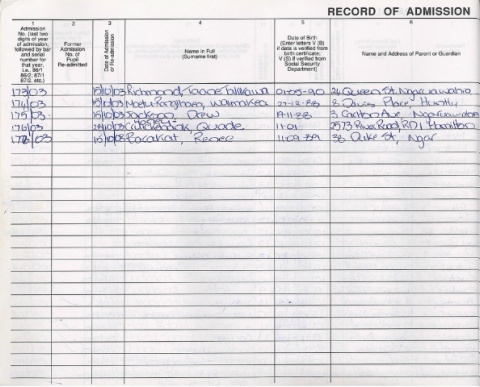 RECORD OF ADMISSION
1 2 3 4 5 6
Admission No. (last two digits of year of admission, followed by bar and serial number for that year. i.e., 86/1 86/2; 87/1 87/2, etc.)
Former Admission No. of Pupil Re-admitted
Date of Admission or Re-admission
Name in Full (Surname first)
Date of Birth (Enter letters V (B) if data is verified from birth certificate; V (S) if verified from Social Security Department)
Name and Address of Parent or Guardian
173/03 15/10/03 Richmond, 01-05-90 24 Queen St. Ngaruawahia
174/03 15/10/03 27-12-88 8 Place, Huntly
175/03 15/10/03 Jackson, Drew 19-11-88 3 Ave, Ngaruawahia
176/03 /10/03 Quade 11-01- River Road, RD1 Hamilton
178/03 15/10/03 Renee 11-09-89 38 Duke St, Ngar